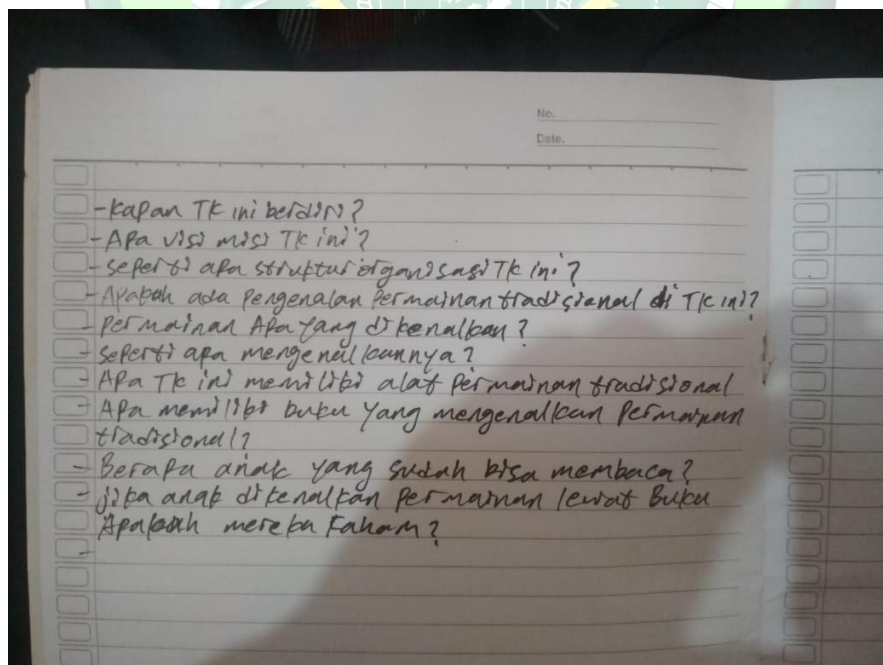 No.
Date.
- Kapan TK ini berdiri?
- Apa visi misi TK ini?
- seperti apa struktur organisasi TK ini?
- Apakah ada Pengenalan Permainan tradisional di TK ini?
- Permainan Apa yang di kenalkan?
- seperti apa mengenalkannya?
- Apa TK ini memiliki alat Permainan tradisional
- Apa memiliki buku yang mengenalkan Permainan
tradisional?
- Berapa anak yang sudah bisa membaca?
- jika anak dikenalkan Permainan lewat Buku
Apakah mereka Faham?
-